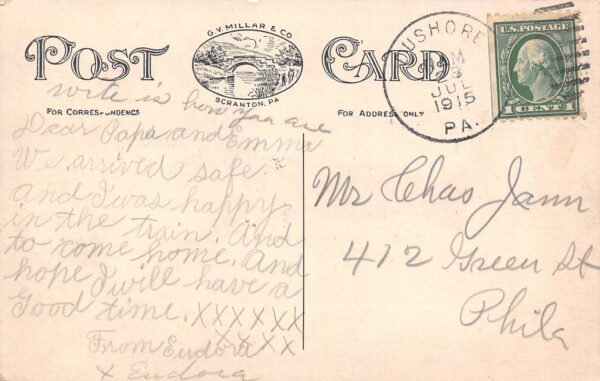 POST CARD
G.V. MILLAR & CO
SCRANTON, PA
FOR CORRESPONDENCE
FOR ADDRESS ONLY
USHORE
M
JUL
1915
PA.
U.S. POSTAGE
1 CENT 1
write is how you are
Dear Papa and Emma
We arrived safe
and I was happy
in the train. And
to come home. And
hope I will have a
Good time. XXXXXX
XXXX
From Eudora
x Eudora
Mr Chas Jann
412 Green St
Phila